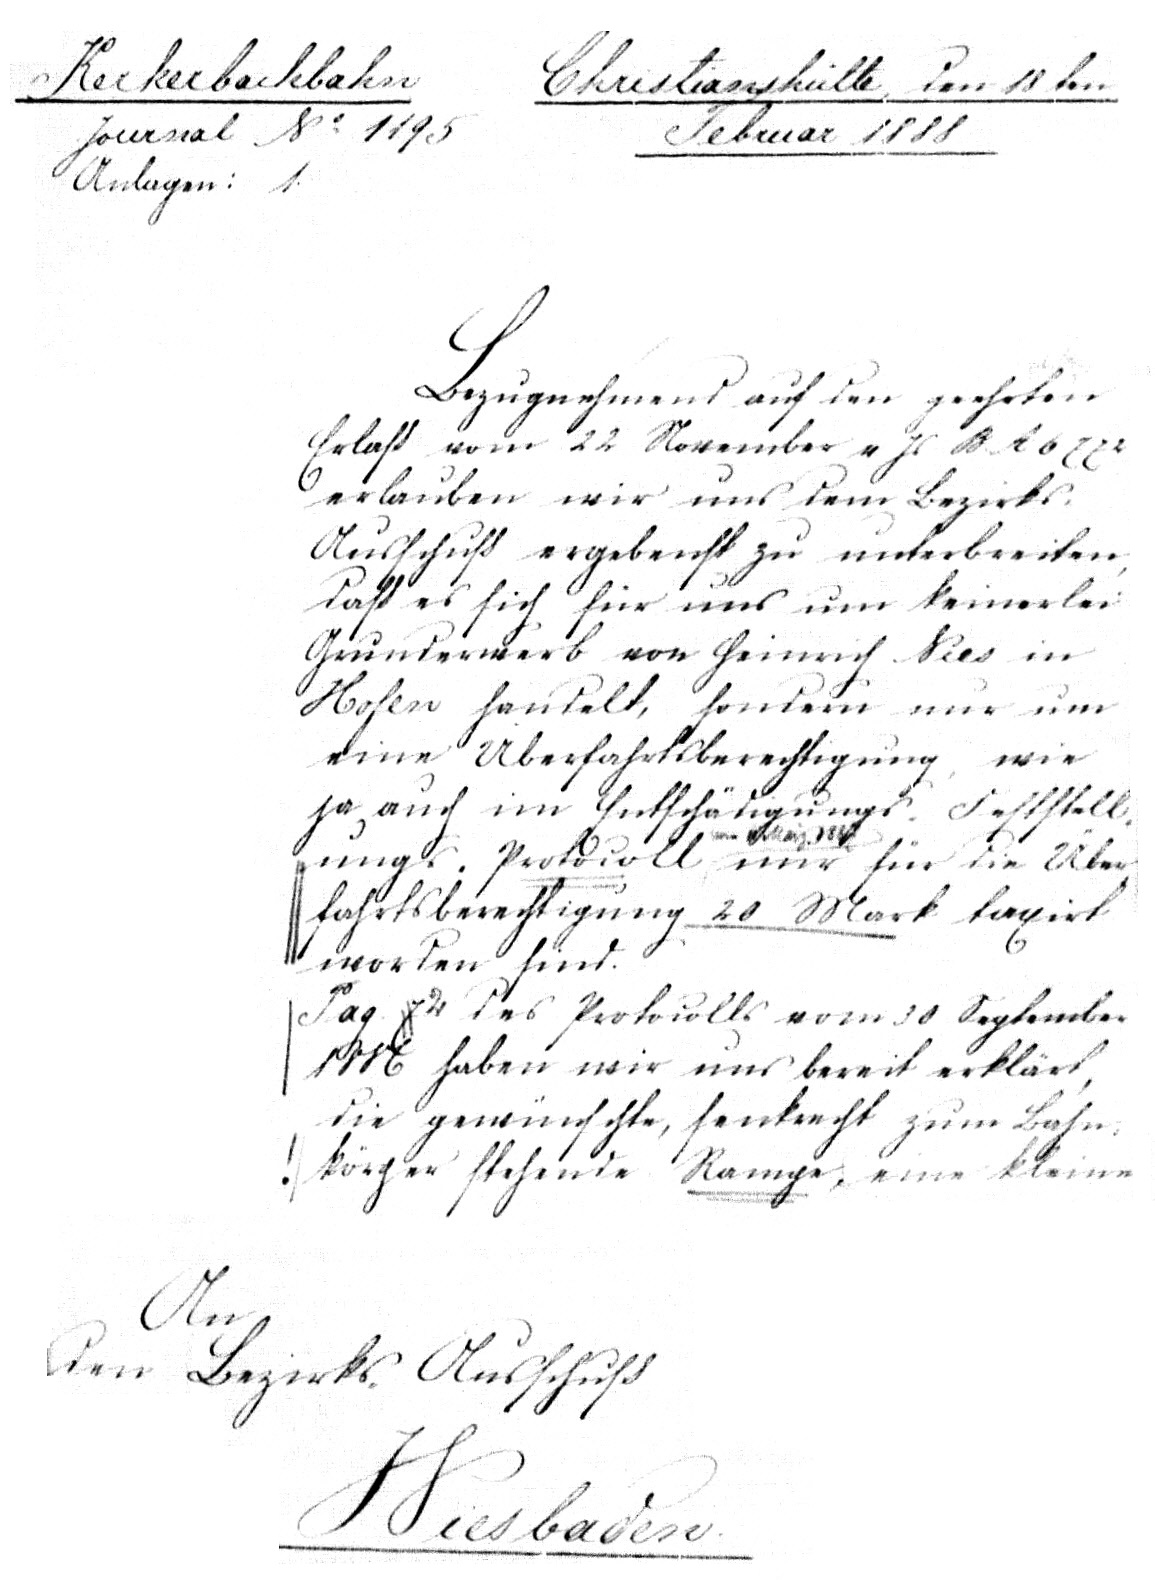 Kerkerbachbahn
Christianshütte, den 18ten
Februar 1888
Journal No. 1195
Anlagen: 1.
Bezugnehmend auf den geehrten
Erlaß vom 22 November v Js B. A
erlauben wir uns dem Bezirks-
Ausschuß ergebenst zu unterbreiten,
daß es sich für uns um keinerlei
Grunderwerb von Heinrich Nies in
Hofen handelt, sondern nur um
eine Überfahrtsberechtigung, wie
ja auch im Entschädigungs-Feststell-
ungs-Protocoll nur für die Über
fahrtsberechtigung 20 Mark taxirt
worden sind.
Pag. 72 des Protocolls vom 30 September
1886 haben wir uns bereit erklärt,
die gewünschte, senkrecht zum Bahn-
! körper stehende Rampe, eine kleine
An
den Bezirks-Ausschuß
Wiesbaden.